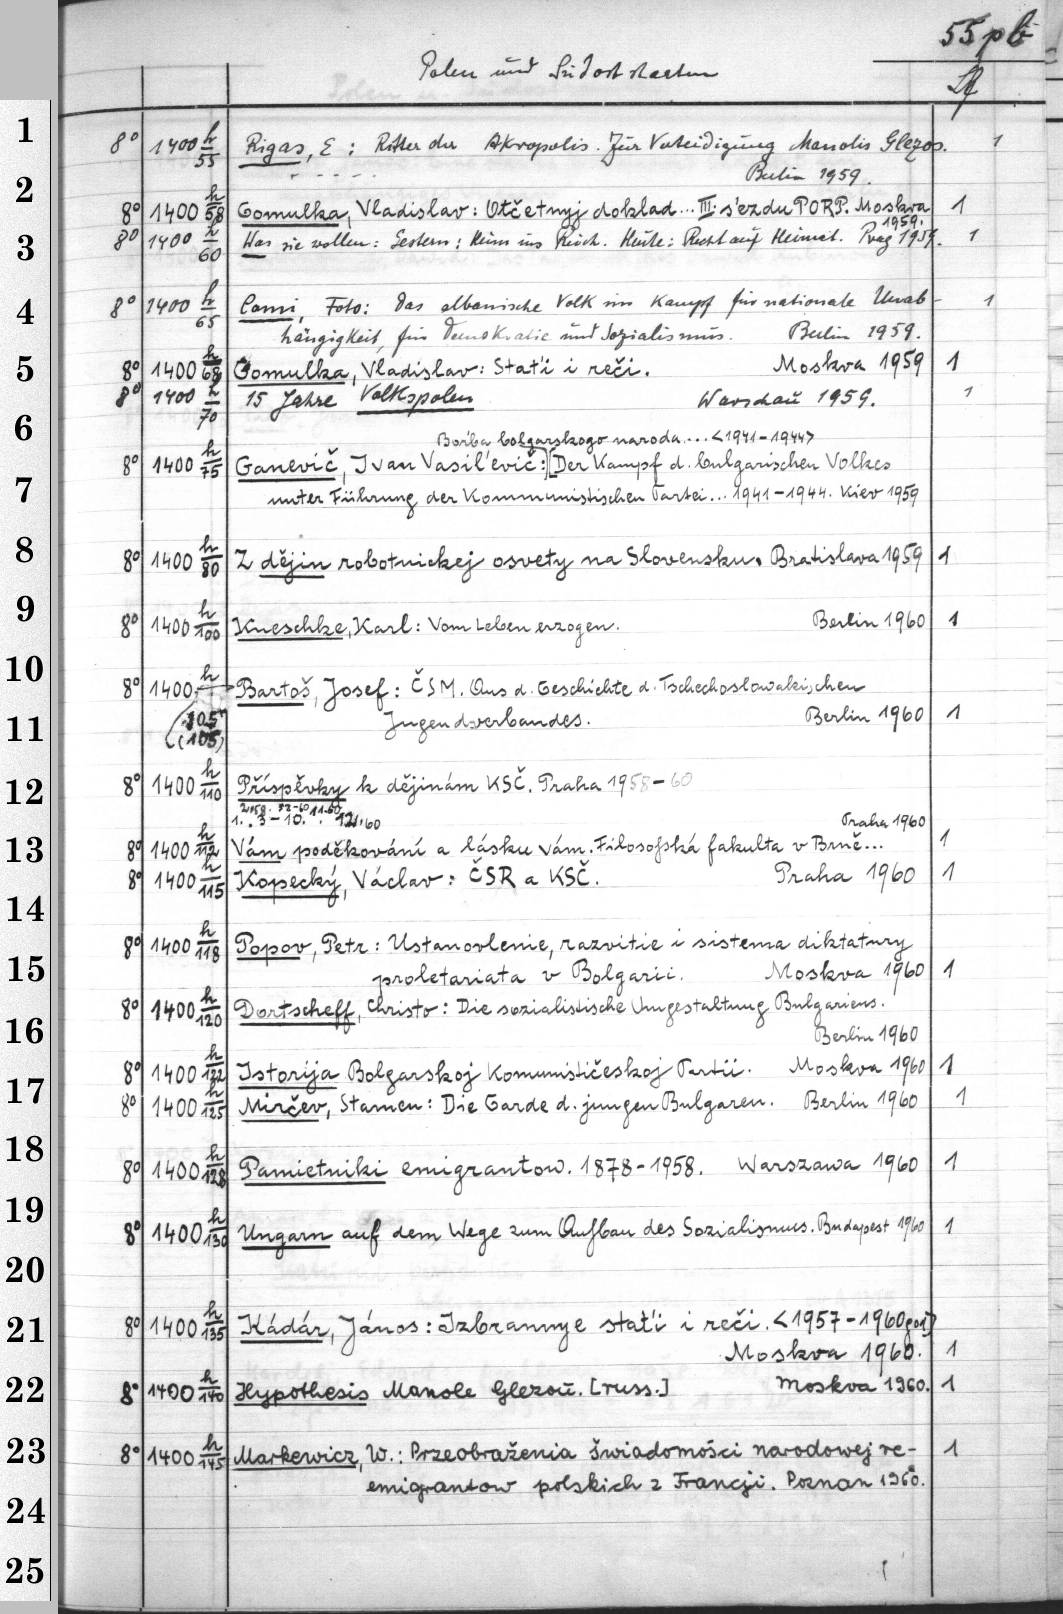 55 pb
Polen und Südoststaaten
1
8° 1400 h/55 Rigas, E: Ritter der Akropolis. Zur Verteidigung Manolis Glezos. 1
Berlin 1959.
2
8° 1400 h/58 Gomulka, Vladislav: Otčetnyj doklad... III. s'ezdu PORP. Moskva 1959. 1
3
8° 1400 h/60 Was sie wollen: Gestern: Heim ins Reich. Heute: Recht auf Heimat. Prag 1959. 1
4
8° 1400 h/65 Çami, Foto: Das albanische Volk im Kampf für nationale Unab- 1
hängigkeit, für Demokratie und Sozialismus. Berlin 1959.
5
8° 1400 h/68 Gomulka, Vladislav: Stat'i i reči. Moskva 1959 1
8° 1400 h/70 15 Jahre Volkspolen Warschau 1959. 1
6
Bor'ba bolgarskogo naroda... <1941-1944>
8° 1400 h/75 Ganevič, Ivan Vasil'evič: [Der Kampf d. bulgarischen Volkes
7
unter Führung der Kommunistischen Partei... 1941-1944. Kiev 1959
8
8° 1400 h/80 Z dějin robotnickej osvety na Slovensku. Bratislava 1959 1
9
8° 1400 h/100 Kneschke, Karl: Vom Leben erzogen. Berlin 1960 1
10
8° 1400 h Bartoš, Josef: ČSM. Aus d. Geschichte d. Tschechoslowakischen
11
105 (105) Jugendverbandes. Berlin 1960 1
12
8° 1400 h/110 Příspěvky k dějinám KSČ. Praha 1958-60
1. 3-10. 12.60
Praha 1960
13
8° 1400 h/112 Vám poděkování a lásku vám. Filosofská fakulta v Brně... 1
8° 1400 h/115 Kopecký, Václav: ČSR a KSČ. Praha 1960 1
14
8° 1400 h/118 Popov, Petr: Ustanovlenie, razvitie i sistema diktatury
15
proletariata v Bolgarii. Moskva 1960 1
8° 1400 h/120 Dortscheff, Christo: Die sozialistische Umgestaltung Bulgariens.
16
Berlin 1960
8° 1400 h/122 Istorija Bolgarskoj Komunističeskoj Partii. Moskva 1960 1
17
8° 1400 h/125 Mirčev, Stamen: Die Garde d. jungen Bulgaren. Berlin 1960 1
18
8° 1400 h/128 Pamietniki emigrantow. 1878-1958. Warszawa 1960 1
19
8° 1400 h/130 Ungarn auf dem Wege zum Aufbau des Sozialismus. Budapest 1960 1
20
21
8° 1400 h/135 Kádár, János: Izbrannye stat'i i reči. <1957-1960 god>
Moskva 1960. 1
22
8° 1400 h/140 Hypothesis Manole Glezou. [russ.] Moskva 1960. 1
23
8° 1400 h/145 Markewicz, W.: Przeobraženia świadomości narodowej re- 1
emigrantow polskich z Francji. Poznan 1960.
24
25